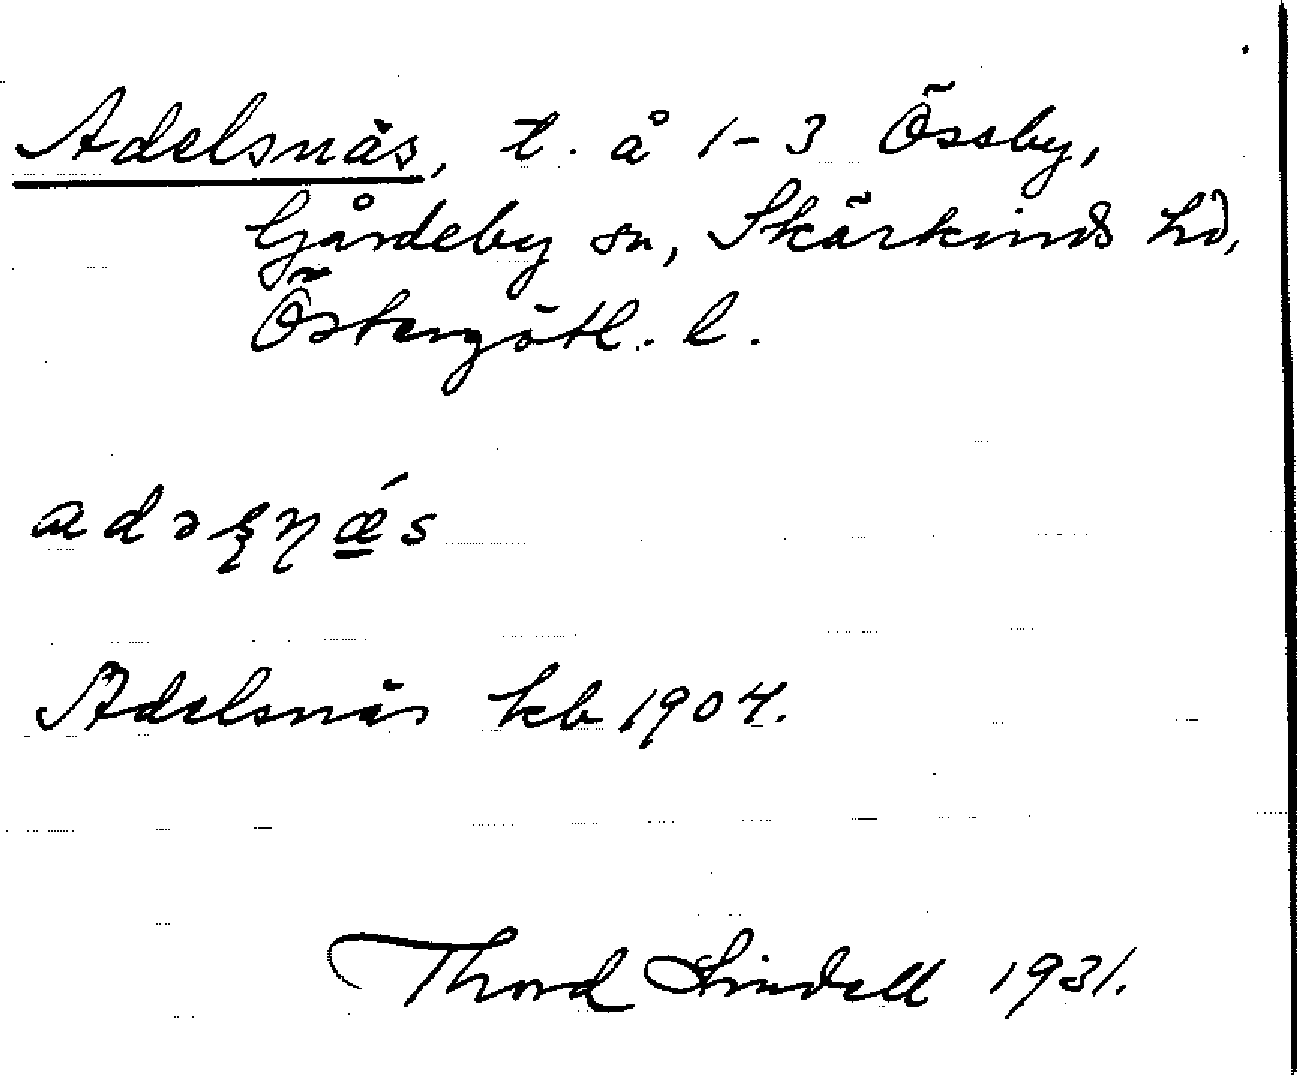 Adelsnäs, t. å 1-3 Össby,
Gårdeby sn, Skärkinds hd,
Östergötl. l.
adəʂɳǽs
Adelsnäs kb 1904.
Thord Lindell 1931.